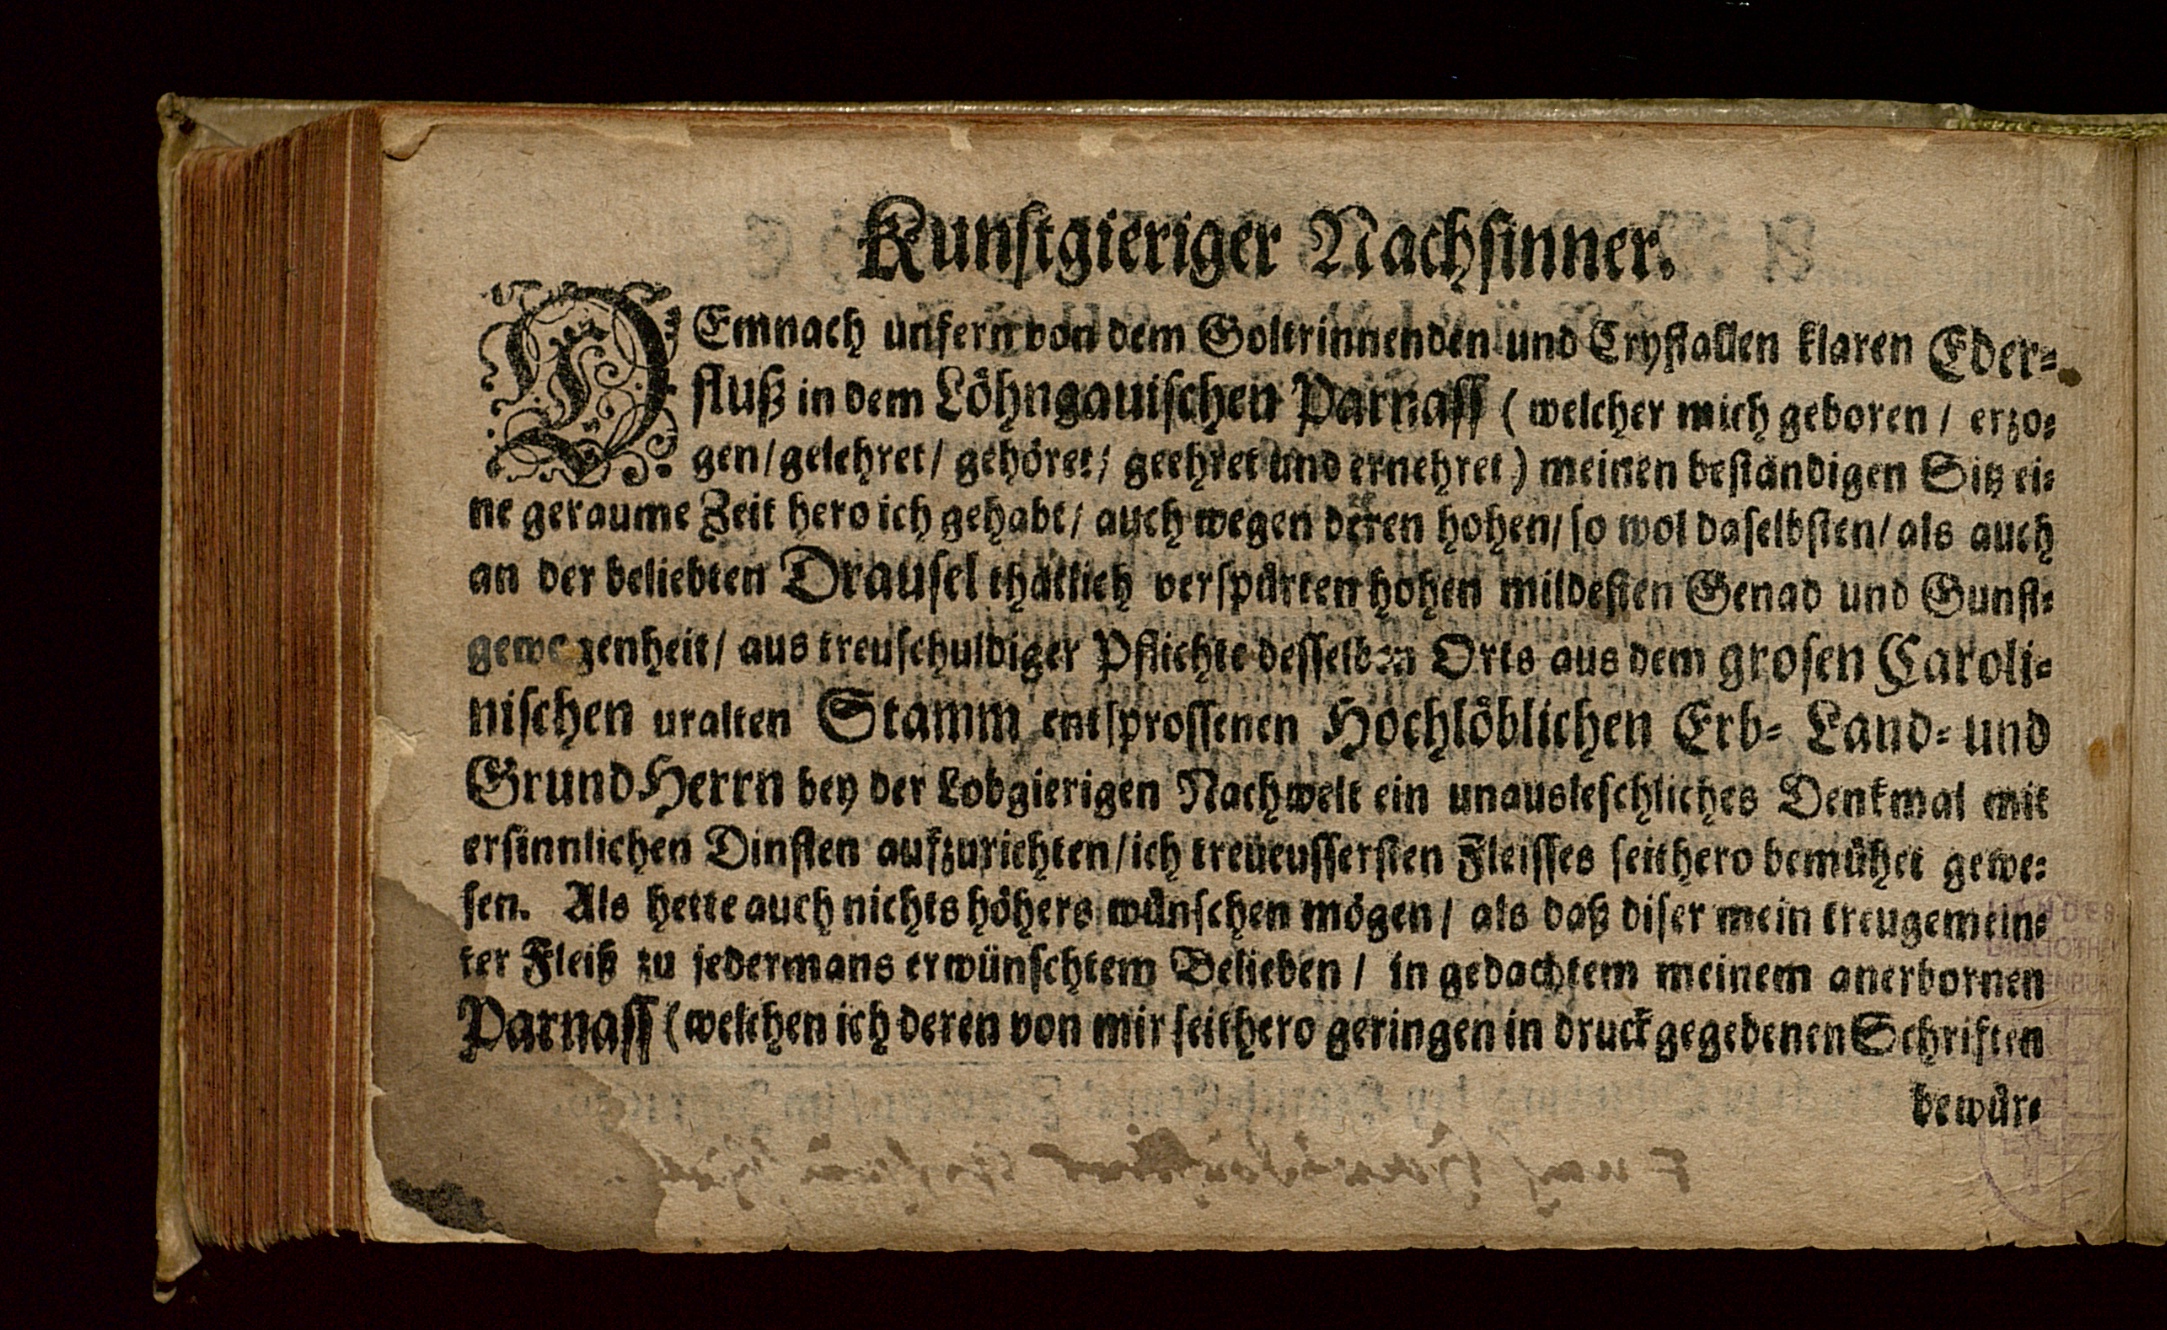 Kunstgieriger Nachsinner.
DEmnach unfern von dem Goltrinnenden und Crystallen klaren Eder-
fluß in dem Löhngauischen Parnass (welcher mich geboren / erzo-
gen / gelehret / gehöret / geehret und ernehret) meinen beständigen Sitz ei-
ne geraume Zeit hero ich gehabt / auch wegen deren hohen / so wol daselbsten / als auch
an der beliebten Drausel thätlich verspürten hohen mildesten Genad und Gunst-
gewogenheit / aus treuschuldiger Pflichte desselben Orts aus dem grosen Caroli-
nischen uralten Stamm entsprossenen Hochlöblichen Erb- Land- und
GrundHerrn bey der Lobgierigen Nachwelt ein unausleschliches Denkmal mit
ersinnlichen Dinsten aufzurichten / ich treüeussersten Fleisses seithero bemühet gewe-
sen. Als hette auch nichts höhers wünschen mögen / als daß diser mein treugemein-
ter Fleiß zu jedermans erwünschtem Belieben / in gedachtem meinem anerbornen
Parnass (welchen ich deren von mir seithero geringen in druck gegebenen Schriften
bewür-